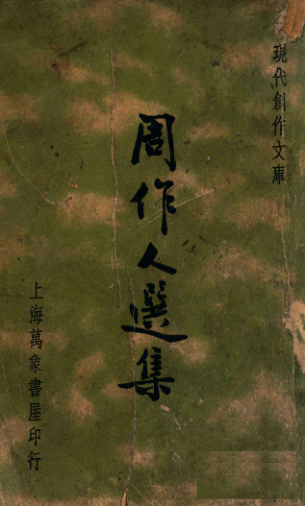 現代創作文庫
周作人選集
上海萬象書屋印行